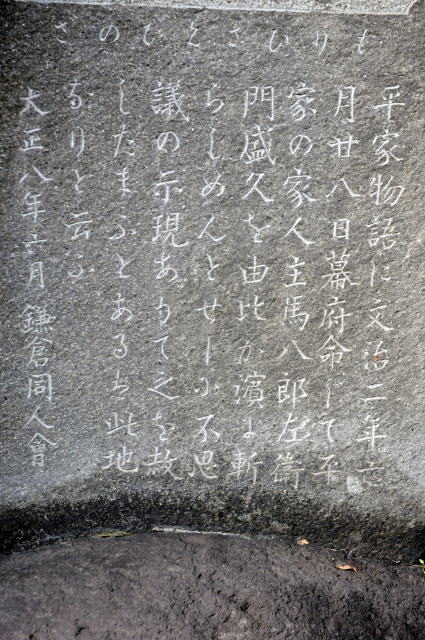 もりひさくびのざ
平家物語に文治二年六
月廿八日幕府命じて平
家の家人主馬八郎左衛
門盛久を由比が濱に斬
らしめんとせしに不思
議の示現ありて之を赦
したまふとあるは此地
なりと云ふ
大正八年六月 鎌倉同人會